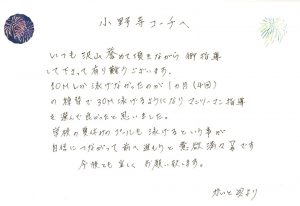 小野寺コーチへ
いつも沢山誉めて頂きながら御指導
して下さって有り難うございます。
10Mしか泳げなかったのが1ヵ月(4回)
の練習で30M泳げるようになりマンツーマン指導
を選んで良かったと思いました。
学校の夏休みのプールも泳げるという事が
自信につながって前へ進もうと意欲満々です
今後とも宜しくお願い致します。
より